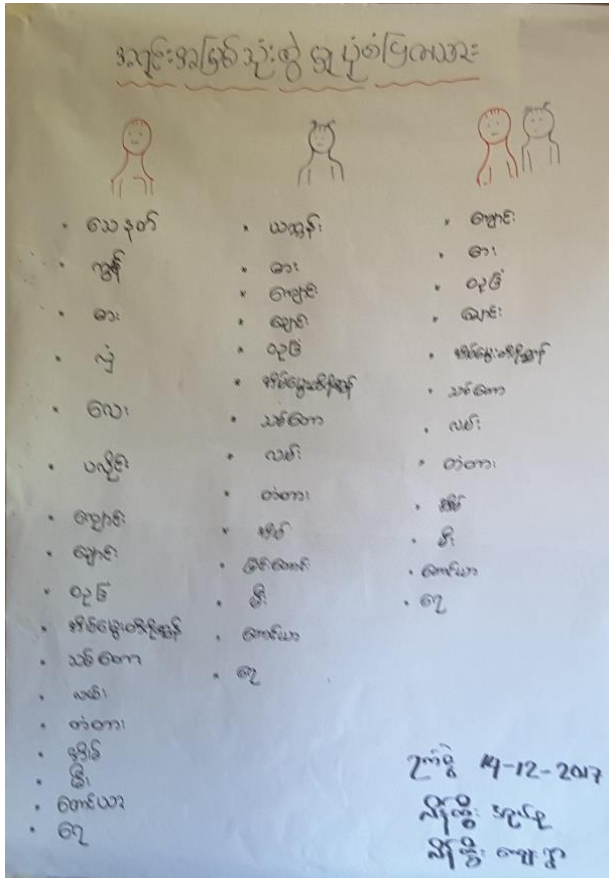 အရင်းအမြစ်သုံးစွဲမှု ပုံစံပြကားချပ်
သေနတ်
ကျွန်
ဓား
လှံ
လေး
ပလိုင်း
ကျောင်း
ချောင်း
ဝဥခြံ
အိမ်မွေးတိရိစ္ဆာန်
သစ်တော
လမ်း
တံတား
အိမ်
မီး
တောင်ယာ
ရေ
ယက္ကန်း
ဓား
ကျောင်း
ချောင်း
ဝဥခြံ
အိမ်မွေးတိရိစ္ဆာန်
သစ်တော
လမ်း
တံတား
အိမ်
ခြင်းတောင်း
မီး
တောင်ယာ
ရေ
ကျောင်း
ဓား
ဝဥခြံ
ချောင်း
အိမ်မွေးတိရိစ္ဆာန်
သစ်တော
လမ်း
တံတား
အိမ်
မီး
တောင်ယာ
ရေ
14-12-2017